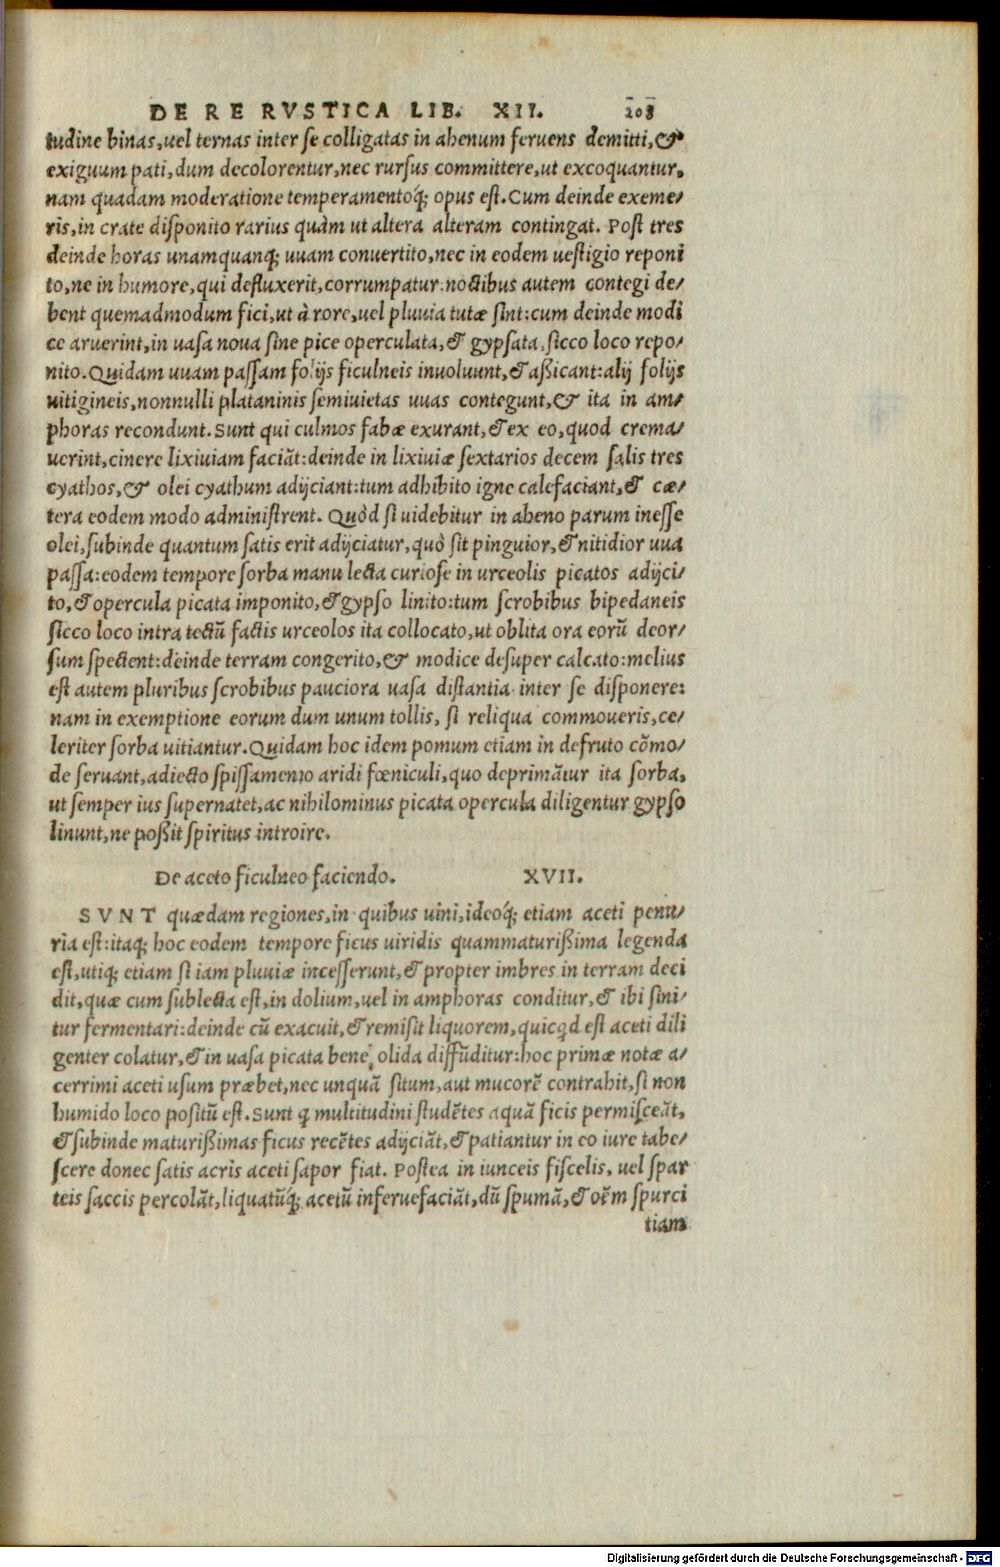 DE RE RVSTICA LIB. XII. 208
tudine binas, uel ternas inter se colligatas in ahenum feruens demitti, &
exiguum pati, dum decolorentur, nec rursus committere, ut excoquantur,
nam quadam moderatione temperamentoq́; opus est. Cum deinde exeme/
ris, in crate disponito rarius quàm ut altera alteram contingat. Post tres
deinde horas unamquanq; uuam conuertito, nec in eodem uestigio reponi
to, ne in humore, qui defluxerit, corrumpatur: noctibus autem contegi de/
bent quemadmodum fici, ut à rore, uel pluuia tutæ sint: cum deinde modi
ce aruerint, in uasa noua sine pice operculata, & gypsata, sicco loco repo/
nito. Quidam uuam passam folijs ficulneis inuoluunt, & aßicant: alij folijs
uitigineis, nonnulli plataninis semiuietas uuas contegunt, & ita in am/
phoras recondunt. Sunt qui culmos fabæ exurant, & ex eo, quod crema/
uerint, cinere lixiuiam faciāt: deinde in lixiuiæ sextarios decem salis tres
cyathos, & olei cyathum adijciant: tum adhibito igne calefaciant, & cæ/
tera eodem modo administrent. Quòd si uidebitur in aheno parum inesse
olei, subinde quantum satis erit adijciatur, quò sit pinguior, & nitidior uua
passa: eodem tempore sorba manu lecta curiose in urceolis picatos adijci/
to, & opercula picata imponito, & gypso linito: tum scrobibus bipedaneis
sicco loco intra tectū factis urceolos ita collocato, ut oblita ora eorū deor/
sum spectent: deinde terram congerito, & modice desuper calcato: melius
est autem pluribus scrobibus pauciora uasa distantia inter se disponere:
nam in exemptione eorum dum unum tollis, si reliqua commoueris, ce/
leriter sorba uitiantur. Quidam hoc idem pomum etiam in defruto cōmo/
de seruant, adiecto spissamento aridi fœniculi, quo deprimātur ita sorba,
ut semper ius supernatet, ac nihilominus picata opercula diligentur gypso
linunt, ne poßit spiritus introire.
De aceto ficulneo faciendo. XVII.
SVNT quædam regiones, in quibus uini, ideoq́; etiam aceti penu/
ria est: itaq; hoc eodem tempore ficus uiridis quammaturißima legenda
est, utiq; etiam si iam pluuiæ incesserunt, & propter imbres in terram deci
dit, quæ cum sublecta est, in dolium, uel in amphoras conditur, & ibi sini/
tur fermentari: deinde cū exacuit, & remisit liquorem, quicqd est aceti dili
genter colatur, & in uasa picata bene olida diffūditur: hoc primæ notæ a/
cerrimi aceti usum præbet, nec unquā situm, aut mucorē contrahit, si non
humido loco positū est. Sunt q multitudini studētes aquā ficis permisceāt,
& subinde maturißimas ficus recētes adijciāt, & patiantur in eo iure tabe/
scere donec satis acris aceti sapor fiat. Postea in iunceis fiscelis, uel spar
teis saccis percolāt, liquatūq́; acetū inferuefaciāt, dū spumā, & oēm spurci
tiam
Digitalisierung gefördert durch die Deutsche Forschungsgemeinschaft - DFG